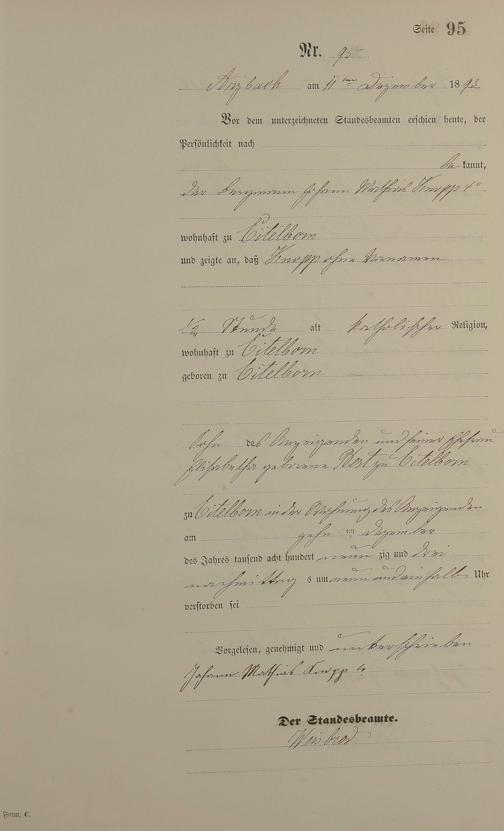 Seite 95
Nr. 95
Arzbach am 11ten Dezember 1893
Vor dem unterzeichneten Standesbeamten erschien heute, der
Persönlichkeit nach
be kannt,
der Bergmann Johann Mathias Knopp 4r
wohnhaft zu Eitelborn
und zeigte an, daß Knopp ohne Vornamen
1/2 Stunde alt katholischer Religion,
wohnhaft zu Eitelborn
geboren zu Eitelborn
Sohn des Anzeigenden und seiner Ehefrau
Elisabetha geborene zu Eitelborn
zu Eitelborn in der Wohnung des Anzeigenden
am zehnten Dezember
des Jahres tausend acht hundert neun zig und drei
nachmittag s um neun und einhalb Uhr
verstorben sei
Vorgelesen, genehmigt und unterschrieben
Johann Mathias Knopp 4.
Der Standesbeamte.
Weisbrod
Form. C.